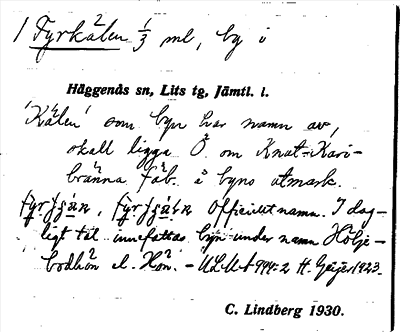 1 Fyrkälen 1/3 ml, by i
Häggenås sn, Lits tg, Jämtl. l.
'Kälen' som byn har namn av,
skall ligga Ö. om Knut-Kari-
bränna fäb. å byns utmark.
Officiellt namn. I dag-
ligt tal innefattas byn under namn Hölje-
bodhön el. Hön. - ULMA 994:2 H. Geijer 1923.
C. Lindberg 1930.